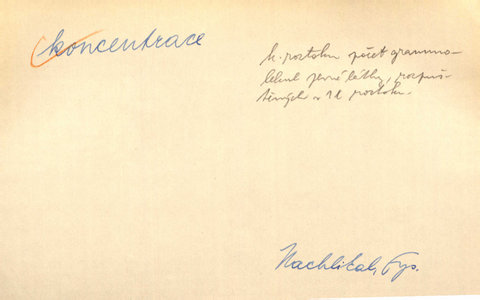 koncentrace
k. roztoku počet grammo-
lekul pevné látky, rozpuš-
těných v 1 l roztoku.
Nachlikal, Fys.